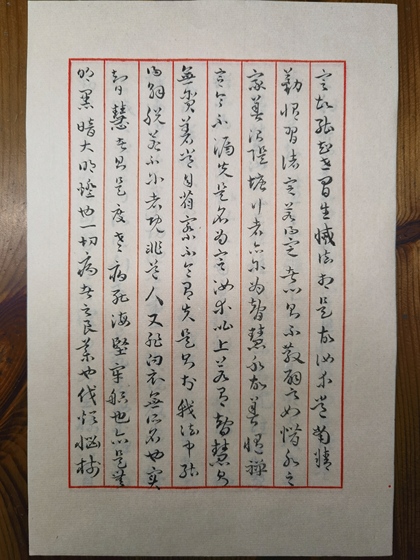 定故能知世間生滅法相是故汝等常當精
勤修習諸定若得定者心則不散譬如惜水之
家善治隄塘行者亦爾為智慧水故善修禪
定令不漏失是名為定汝等比丘若有智慧則
無貪著常自省察不令有失是則於我法中能
得解脫若不爾者既非道人又非白衣無所名也實
智慧者則是度老病死海堅牢船也亦是無
明黑暗大明燈也一切病者之良藥也伐煩惱樹